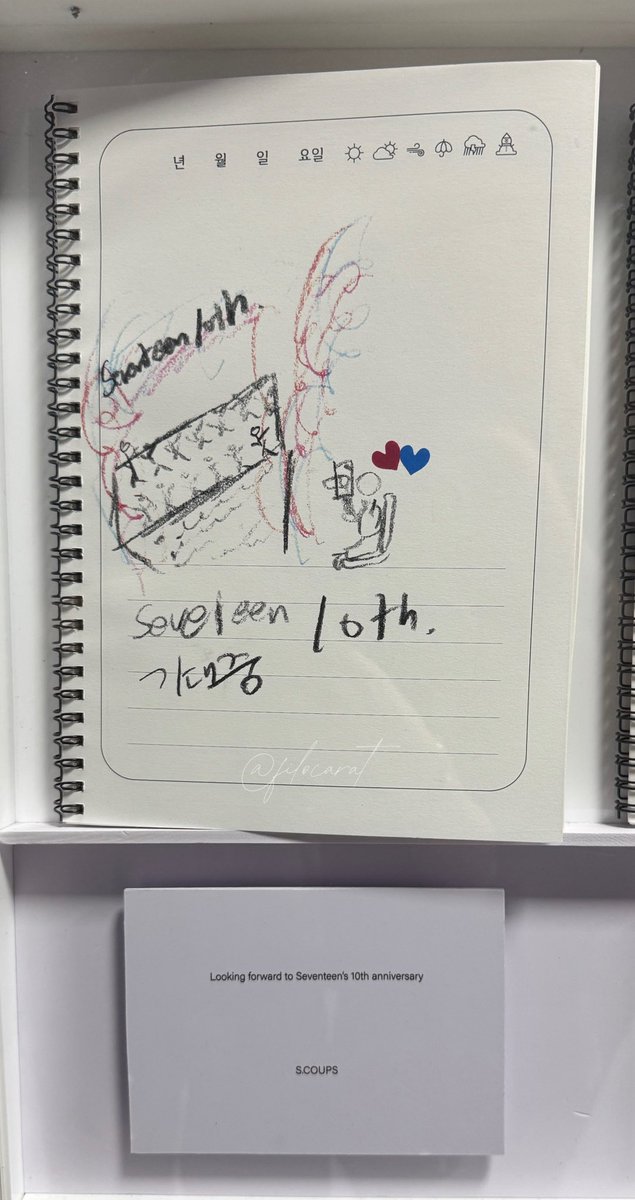 년 월 일 요일
Seventeen 10th.
Seveteen 10th.
기대중
@filocarat
Looking forward to Seventeen's 10th anniversary
S.COUPS